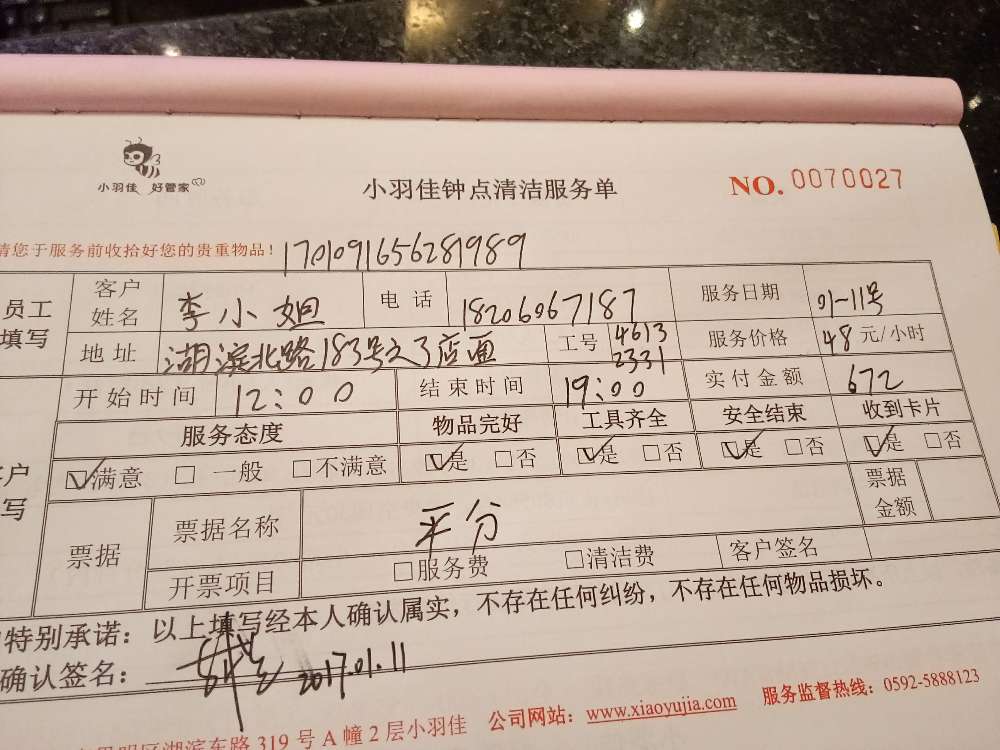 小羽佳 好管家
小羽佳钟点清洁服务单
NO. 0070027
请您于服务前收拾好您的贵重物品！ 1701091656281989
员工填写 客户姓名 李小姐 电话 18206067187 服务日期 01-11号
地址 湖滨北路183号之3店面 工号 4613 2331 服务价格 48元/小时
开始时间 12:00 结束时间 19:00 实付金额 672
服务态度 物品完好 工具齐全 安全结束 收到卡片
☑满意 □一般 □不满意 ☑是 □否 ☑是 □否 ☑是 □否 ☑是 □否
客户填写
票据 票据名称 平分 票据金额
开票项目 □服务费 □清洁费 客户签名
特别承诺：以上填写经本人确认属实，不存在任何纠纷，不存在任何物品损坏。
确认签名： 2017.01.11
湖滨东路 319 号 A 幢 2 层小羽佳 公司网站：www.xiaoyujia.com 服务监督热线：0592-5888123